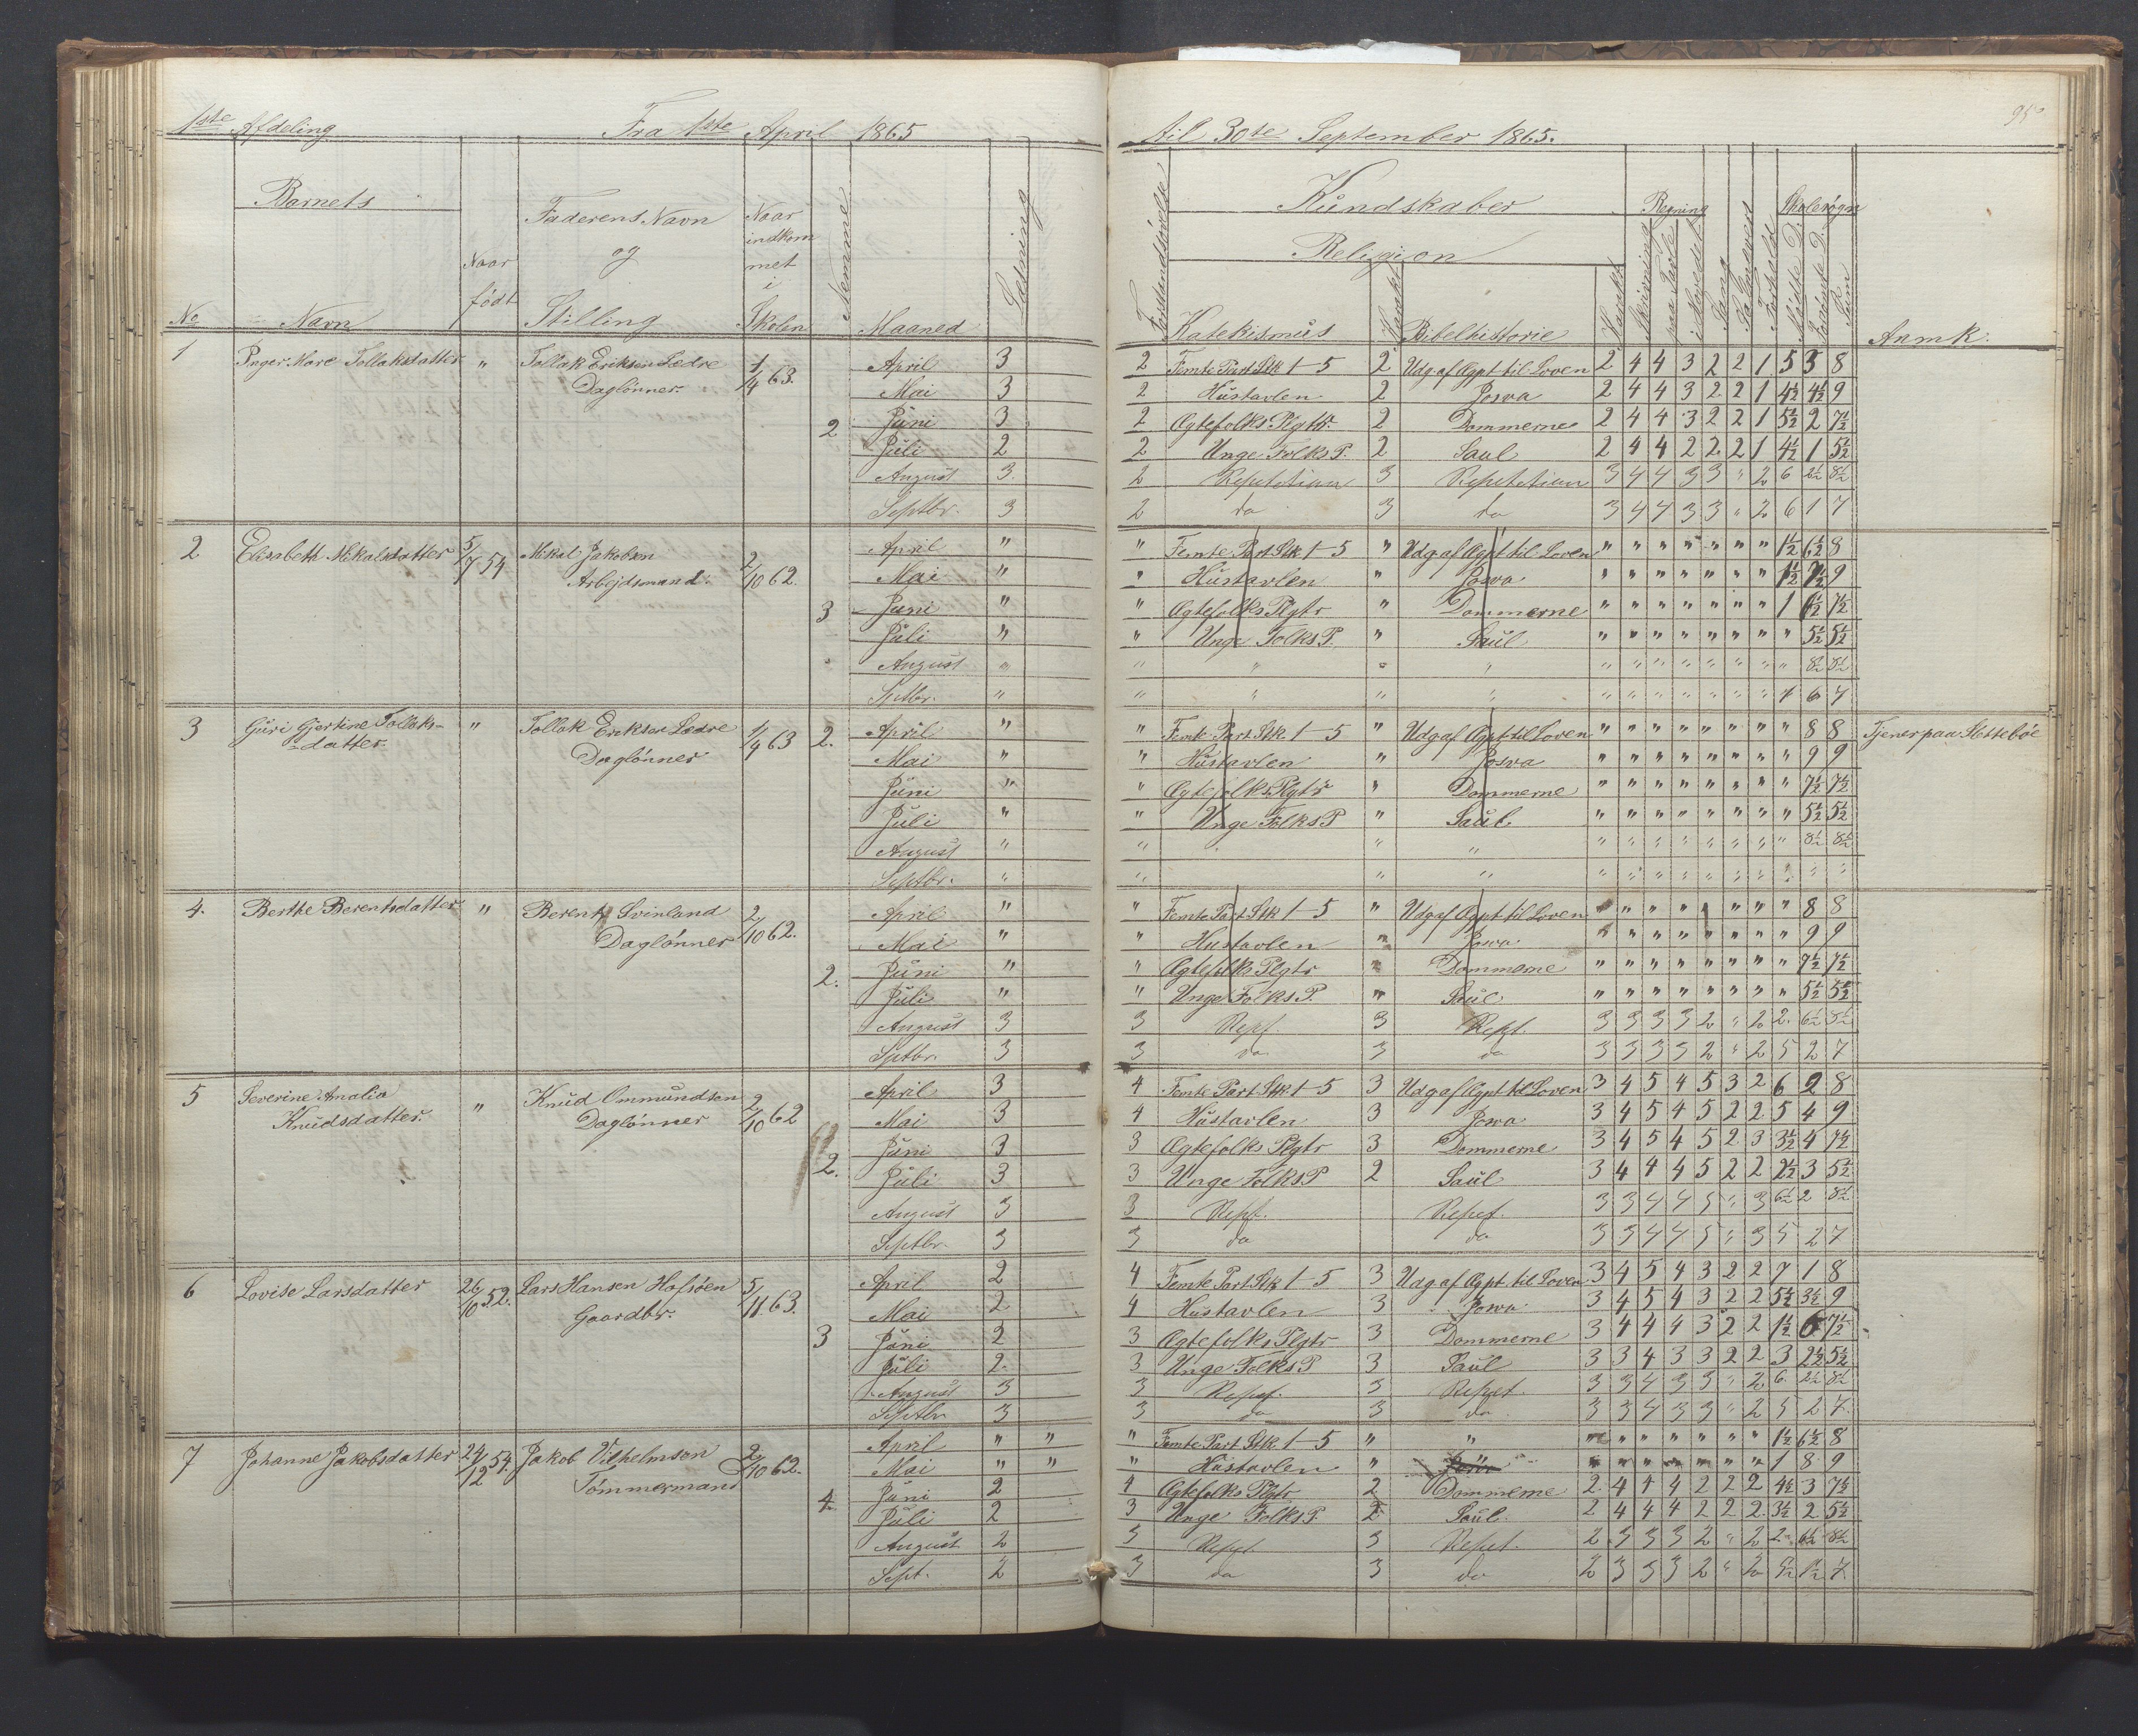 95
1ste Afdeling. Fra 1ste April 1865 til 30te September 1865.
Barnets Faderens Navn Naar Nemme Læsning Forstandsøvelse Kundskaber Regning Skolesøgn
og indkom Religion
Naar met
født i
No Navn Stilling Skolen Maaned Katekismus Karakt Bibelhistorie Karakt Skrivning paa Tavle i Hovedet Sang Forhold Mødte D. Forsømte D. Sum Anmk:
1 Inger Mare Tollaksdatter " Tollak Eriksen Ledre 1/4 63. April 3 2 Femte Part Stk 1-5 2 Udg af Ægpt til Loven 2 4 4 3 2 2 1 5 3 8
Daglønner. Mai 3 2 Hustavlen 2 Josva 2 4 4 3 2 2 1 4½ 4½ 9
2 Juni 3 2 Ægtefolks Plgtr 2 Dommerne 2 4 4 3 2 2 1 5½ 2 7½
Juli 2 2 Unge Folks P. 2 Saul 2 4 4 2 2 2 1 4½ 1 5½
August 3. 2 Repetetiun 3 Repetetiun 3 4 4 3 3 " 2 6 2½ 8½
Septbr. 3 2 do 3 do 3 4 4 3 3 " 2 6 1 7
2 Elisabeth Mikalsdatter 5/7 54 Mikal Jakobsen 2/10 62. April " " Femte Part Stk 1-5 " Udg af Ægpt til Loven " " " " " " " 1½ 6½ 8
Arbejdsmand. Mai " " Hustavlen " Josva " " " " " " " 1½ 7½ 9
3 Juni " " Ægtefolks Plgtr " Dommerne " " " " " " " 1 6½ 7½
Juli " " Unge Folks P. " Saul " " " " " " " " 5½ 5½
August " " " " " " " " " " " " " 8½ 8½
Sptbr. " " " " " " " " " " " " 1 6 7
3 Guri Gjertine Tollaks- " Tollak Eriksen Ledre 1/4 63 2. April " " Femte Part Stk 1-5 " Udg af Ægpt til Loven " " " " " " " " 8 8 Tjener paa Slettebøe
-datter. Daglønner Mai " " Hustavlen " Josva " " " " " " " " 9 9
Juni " " Ægtefolks Plgtr " Dommerne " " " " " " " " 7½ 7½
Juli " " Unge Folks P " Saul " " " " " " " " 5½ 5½
August " " " " " " " " " " " " 8½ 8½
Septbr. " " " " " " " " " " " " " "
4. Berthe Berentsdatter " Berent Svinland 2/10 62. April " " Femte Part Stk 1-5 " Udg af Ægpt til Loven " " " " " " " " 8 8
Daglønner Mai " " Hustavlen " Josva " " " " " " " " 9 9
2. Juni " " Ægtefolks Plgtr " Dommerne " " " " " " " " 7½ 7½
Juli " " Unge Folks P. " Saul " " " " " " " " 5½ 5½
August 3 3 Repf. 3 Rept. 3 3 3 3 2 " 2 2. 6½ 8½
Sptbr. 3 3 do 3 do 3 3 3 3 2 " 2 5 2 7
5 Severine Analia " Knud Ommundsen 2/10 62 April 3 4 Femte Part Stk 1-5 3 Udg af Ægpt til Loven 3 4 5 4 5 3 2 6 2 8
Knudsdatter. Daglønner Mai 3 4 Hustavlen 3 Josva 3 4 5 4 5 2 2 5 4 9
2. Juni 3 3 Ægtefolks Plgtr 3 Dommerne 3 4 5 4 5 2 3 3½ 4 7½
Juli 3 3 Unge Folks P 2 Saul 3 4 4 4 5 2 2 2½ 3 5½
August 3 3 Repf. Repet. 3 3 4 4 5 " 3 6½ 2 8½
Septbr. 3 3 do do 3 3 4 4 5 " 3 5 2 7
6 Lovise Larsdatter 26/10 52. Lars Hansen Hafsøen 5/11 63. April 2 4 Femte Part Stk 1-5 3 Udg af Ægpt til Loven 3 4 5 4 3 2 2 7 1 8
Gaardbr. Mai 2 4 Hustavlen 3 Josva 3 4 5 4 3 2 2 5½ 3½ 9
3 Juni 2 3 Ægtefolks Plgtr 3 Dommerne 3 4 4 4 3 2 2 1½ 6 7½
Juli 2. 3 Unge Folks P 3 Saul 3 3 4 3 3 2 2 3 2½ 5½
August 3 3 Repet. 3 Repet. 3 3 4 3 3 " 2 6 2½ 8½
Septbr 3 3 do 3 do 3 3 4 3 3 " 2 5 2 7.
7 Johanne Jakobsdatter 24/12 54. Jakob Vilhelmsen 2/10 62. April " " " Femte Part Stk. 1-5 " " " " " " " " " 1½ 6½ 8
Tømmermand Mai " " " Hustavlen " " " " " " " " 1 8 9
4. Juni 2 4 Ægtefolks Plgtr 2 Dommerne 2. 4 4 4 2 2 2 4½ 3 7½
Juli 2 3 Unge Folks P. 2 Saul. 2 4 4 4 2 2 2. 3½ 2 5½
August 2 3 Repet 3 Repet. 2 3 3 3 2 " 2 2 6½ 8½
Sept. 2 3 do 3 do 2 3 3 3 2 " 2 5½ 1½ 7